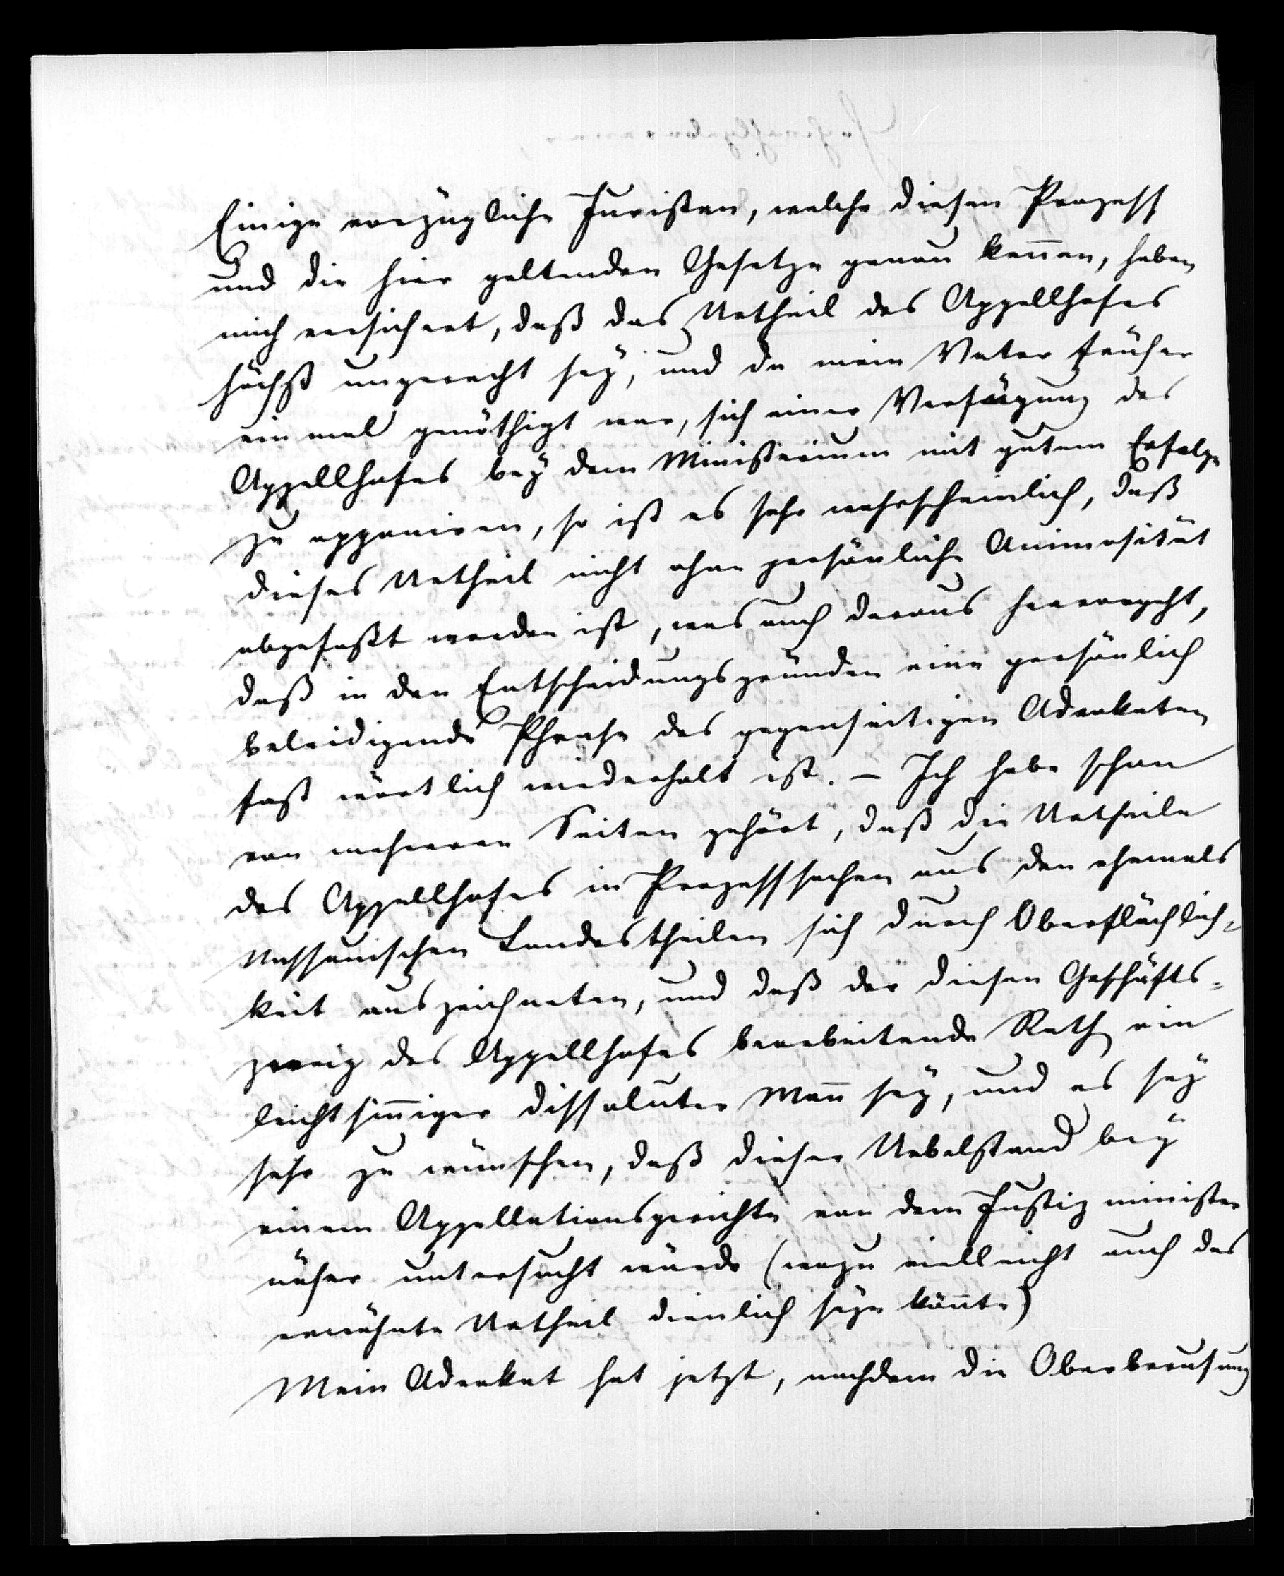 Einige vorzügliche Juristen, welche diesen Prozeß
und die hier geltenden Gesetze genau keñen, haben
mich versichert, daß das Urtheil des Appellhofes
höchst ungerecht sey, und da mein Vater früher
einmal genöthigt war, sich einer Verfügung des
Appellhofes bey dem Ministerium mit gutem Erfolge
zu opponiren, so ist es sehr wahrscheinlich, daß
dieses Urtheil nicht ohne persönliche Animosität
abgefaßt worden ist, was auch daraus hervorgeht,
daß in den Entscheidungsgründen eine persönlich
beleidigende Phrase des gegenseitigen Advokaten
fast wörtlich wiederholt ist. – Ich habe schon
von mehreren Seiten gehört, daß die Urtheile
des Appellhofes in Prozeßsachen aus den ehemals
Nassauischen Landestheilen sich durch Oberflächlich-
keit auszeichneten, und daß der diesen Geschäfts-
zweig des Appellhofes bearbeitende Rath ein
leichtsiñiger dissoluter Mañ sey, und es sey
sehr zu wünschen, daß dieser Uebelstand bey
einem Appellationsgerichte von dem Justizminister
näher untersucht würde (wozu vielleicht auch das
erwähnte Urtheil dienlich seyn köñte)
Mein Advokat hat jetzt, nachdem die Oberberufung